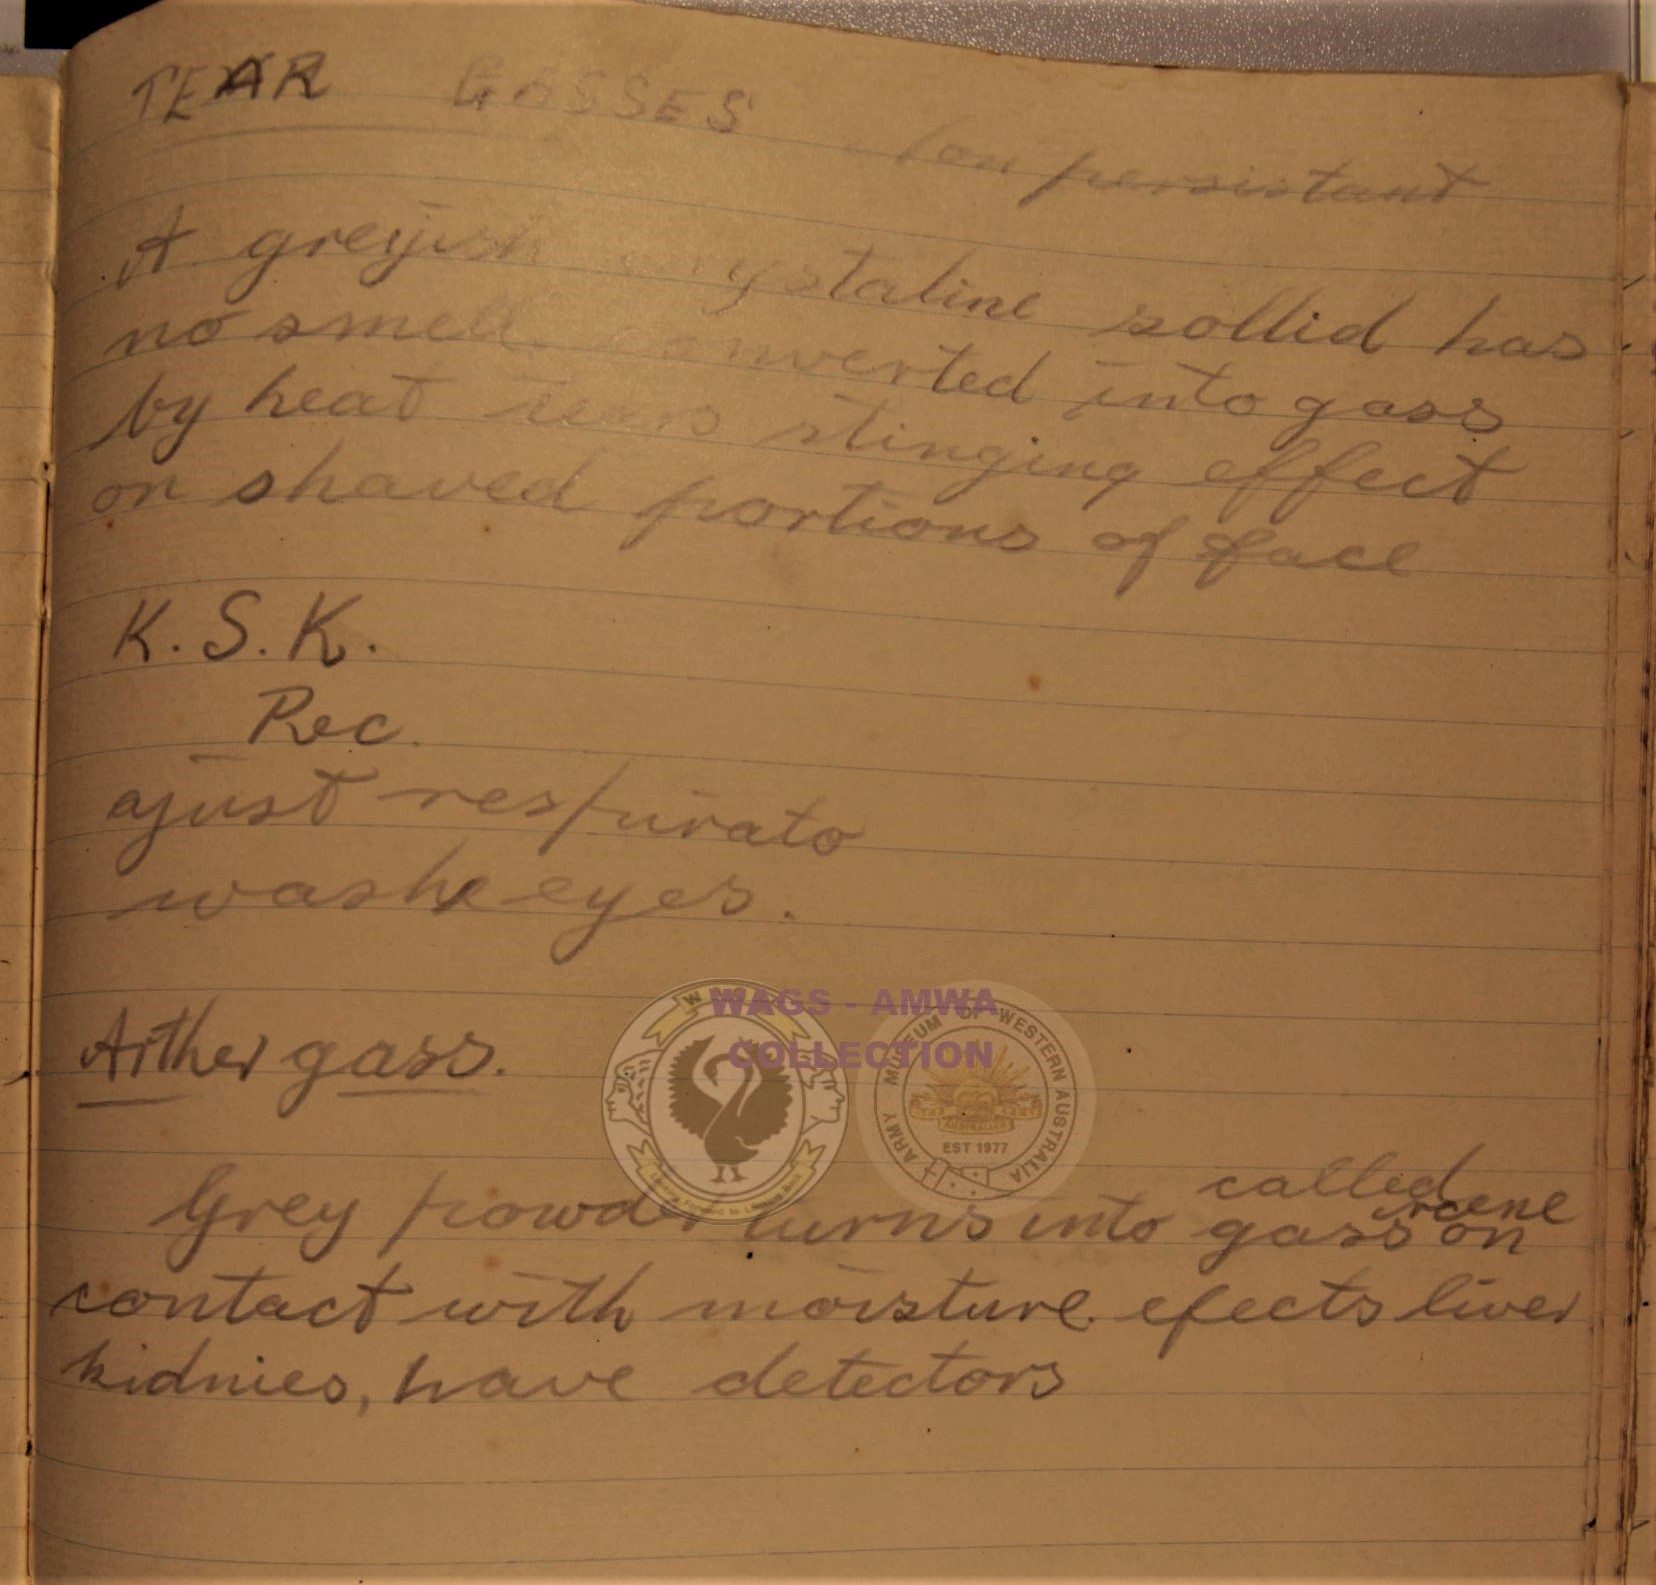 TEAR GASSES
persistant
A greyish crystaline sollid has
no smell converted into gass
by heat tears stinging effect
on shaved portions of face
K.S.K.
Rec.
ajust respirato
washe eyes.
Arther gass.
called
Grey powder turns into gass on
contact with moisture efects liver
kidnies, have detectors
WAGS - AMWA
COLLECTION
ARMY MUSEUM OF WESTERN AUSTRALIA
EST 1977